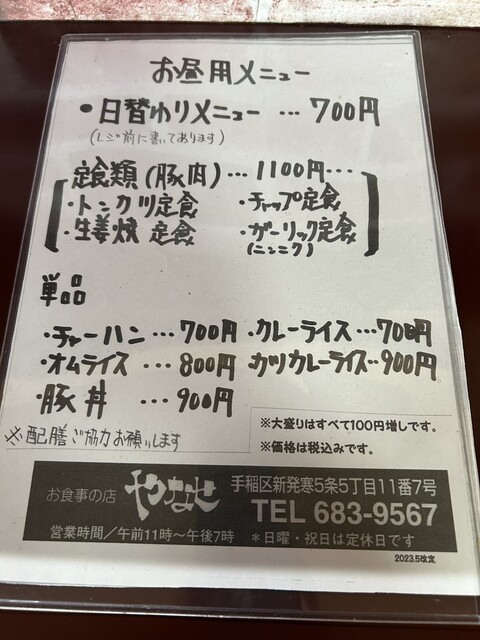 お昼用メニュー
・日替わりメニュー…700円
(レジ前に書いてあります)
定食類(豚肉)…1100円…
・トンカツ定食 ・チャップ定食
・生姜焼定食 ・ガーリック定食
(ニンニク)
単品
・チャーハン…700円 ・カレーライス…700円
・オムライス…800円 ・カツカレーライス…900円
・豚丼…900円
※配膳ご協力お願いします
※大盛りはすべて100円増しです。
※価格は税込みです。
お食事の店 やなせ
手稲区新発寒5条5丁目11番7号
TEL 683-9567
営業時間/午前11時〜午後7時 *日曜・祝日は定休日です
2023.5改定